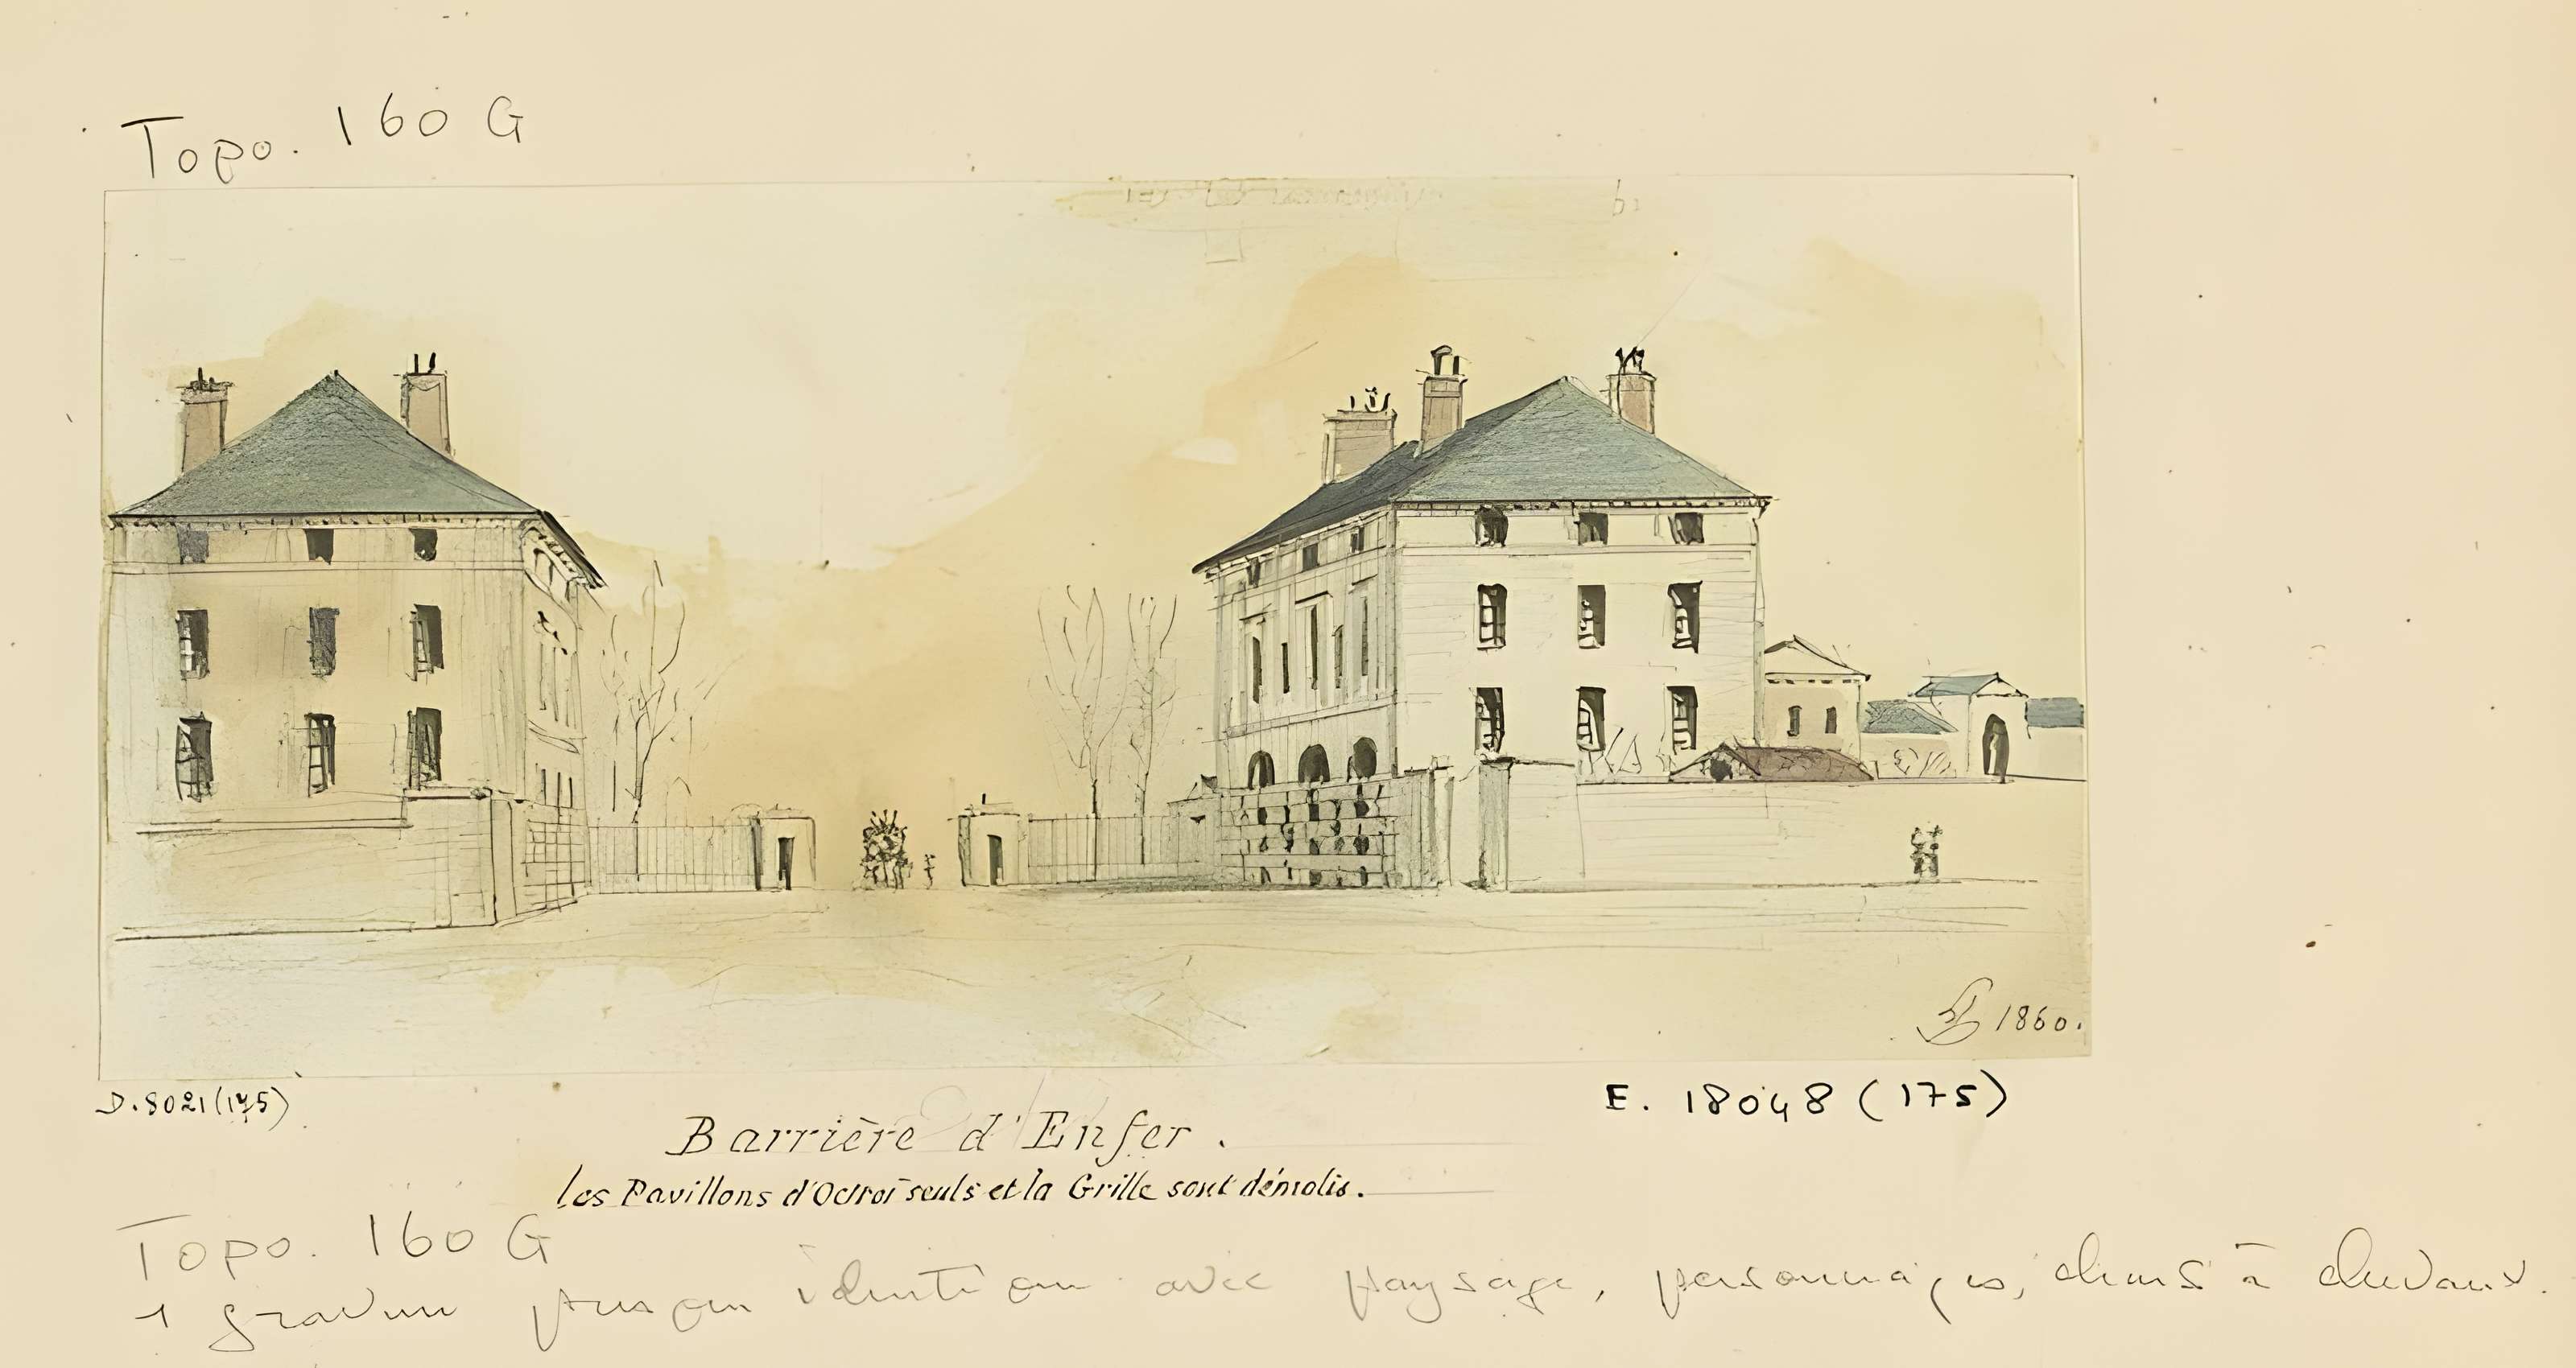 Topo. 160 G
1860.
D. 8021 (175)
E. 18048 (175)
Barrière d'Enfer.
les Pavillons d'Octroi seuls et la Grille sont démolis.
Topo. 160 G
1 gravure presque identique avec paysage, personnages, chars à chevaux.